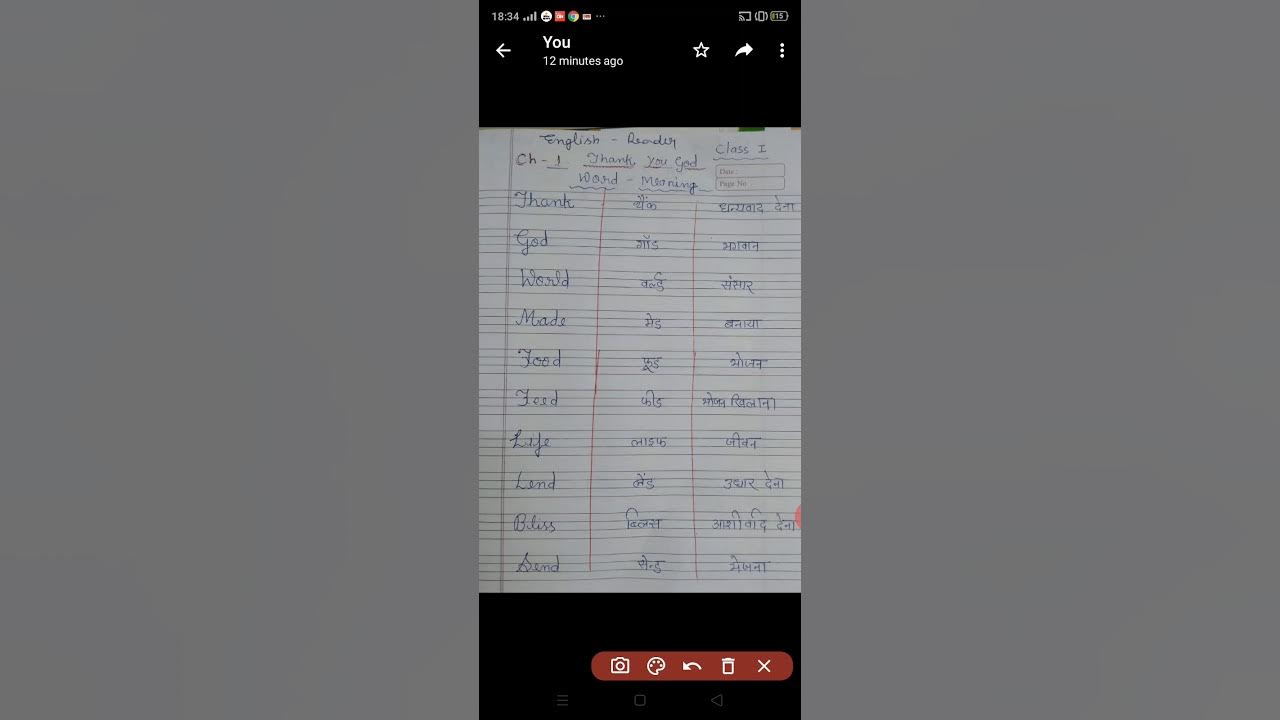 18:34
15
You
12 minutes ago
English - Reader
Class I
Ch - 1 Thank You God
Date :
Page No
Word - Meaning
Thank थैंक धन्यवाद देना
God गॉड भगवान
World वर्ल्ड संसार
Made मेड बनाया
Food फूड भोजन
Feed फीड भोजन खिलाना
Life लाइफ जीवन
Lend लेंड उधार देना
Bliss ब्लिस आशीर्वाद देना
Send सेन्ड भेजना